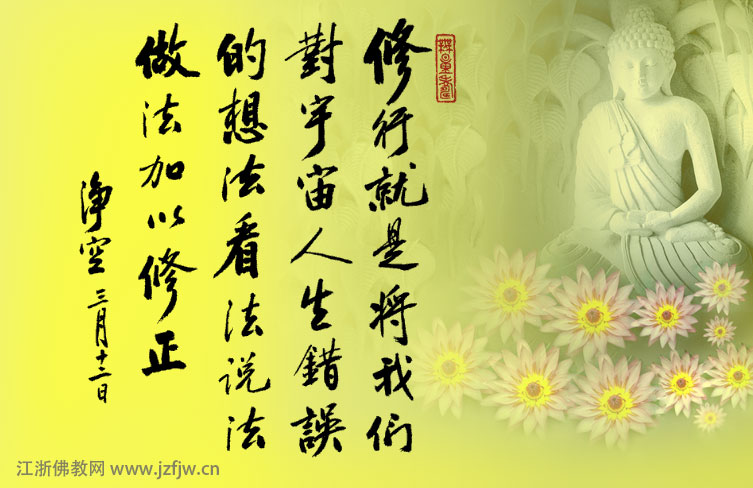 修行就是將我们
對宇宙人生錯誤
的想法看法説法
做法加以修正
淨空 三月十二日
江浙佛教网 www.jzfjw.cn